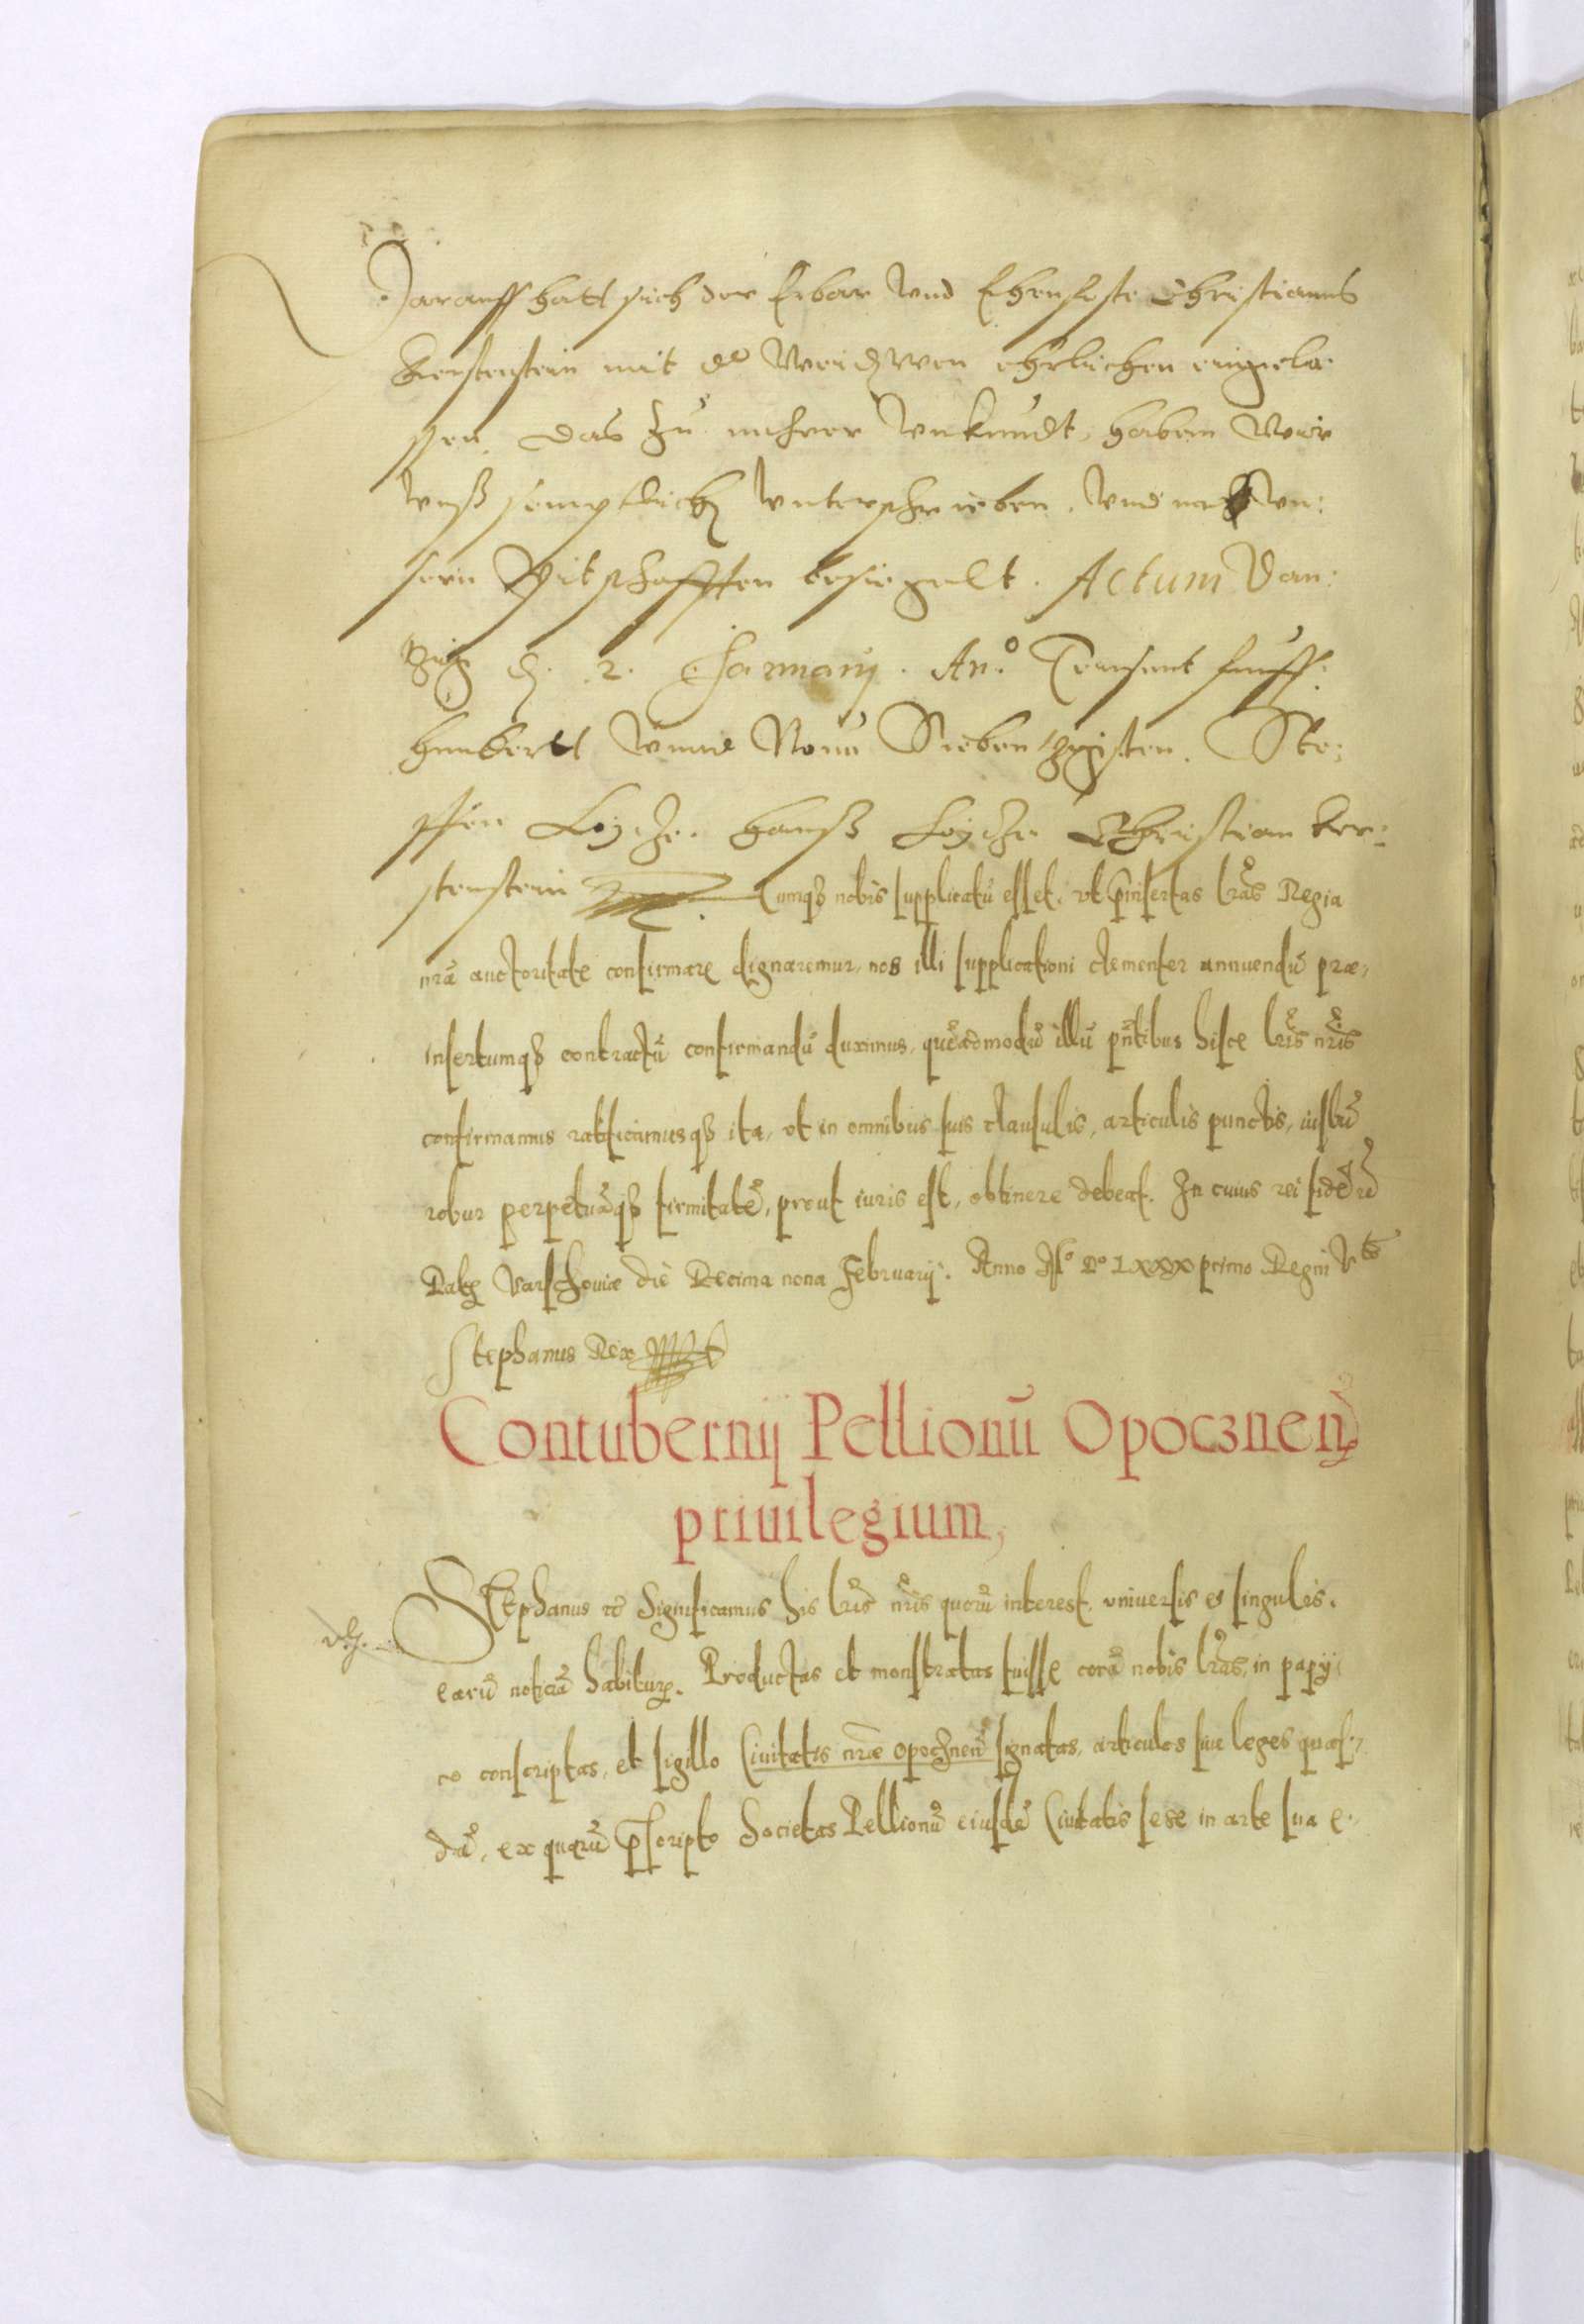 Darauff hatt sich der Erbar vnd Ehenfeste Christianus
Kerstenstein mit der ehrlichen eingela
ssen. Das zu mehrer vrkundt, haben Wier
vnß semptlich vnterschrieben. vnd mit vn:
sern Pitschafften besiegelt. Actum Dan:
tzig d. 2. January. An.o Teusent funff:
hundertt vnnd Neun Siebentzigsten. Ste:
ffen Loytze. Hanß Loytze Christian ker:
stenstein Cumqȝ nobis supplicatū esset, vt p̄insertas lrās Regia
nrā auctoritate confirmare dignaremur, nos illi supplicationi clementer annuendū præ,
insertumqȝ contractū confirmandū duximus, quēadmodū illū pn̄tibus hisce lrīs nrīs
confirmamus ratificamusqȝ ita, vt in omnibus suis clausulis, articulis punctis, iustū
robur perpetuāqȝ firmitatē, prout iuris est, obtinere debeat. In cuius rei fidē rē
Datȝ Varschouiæ die Decima nona February. Anno Mo Do LXXX primo Regni Vto
Stephanus Rex
Contubernij Pellionū Opocznen̄
priuilegium,
Stephanus rē Significamus his lrīs nrīs quorū interest, vniuersis et singulis.
earū noticiā habiturȝ. Productas et monstratas fuisse corā nobis lrās, in papy:
ro conscriptas, et sigillo Ciuitatis nræ opocznen̄ signatas, articulos siue leges quas:
dā, ex quarū p̄scripto Societas Pellionū eiusdē Ciuitatis sese in arte sua e: